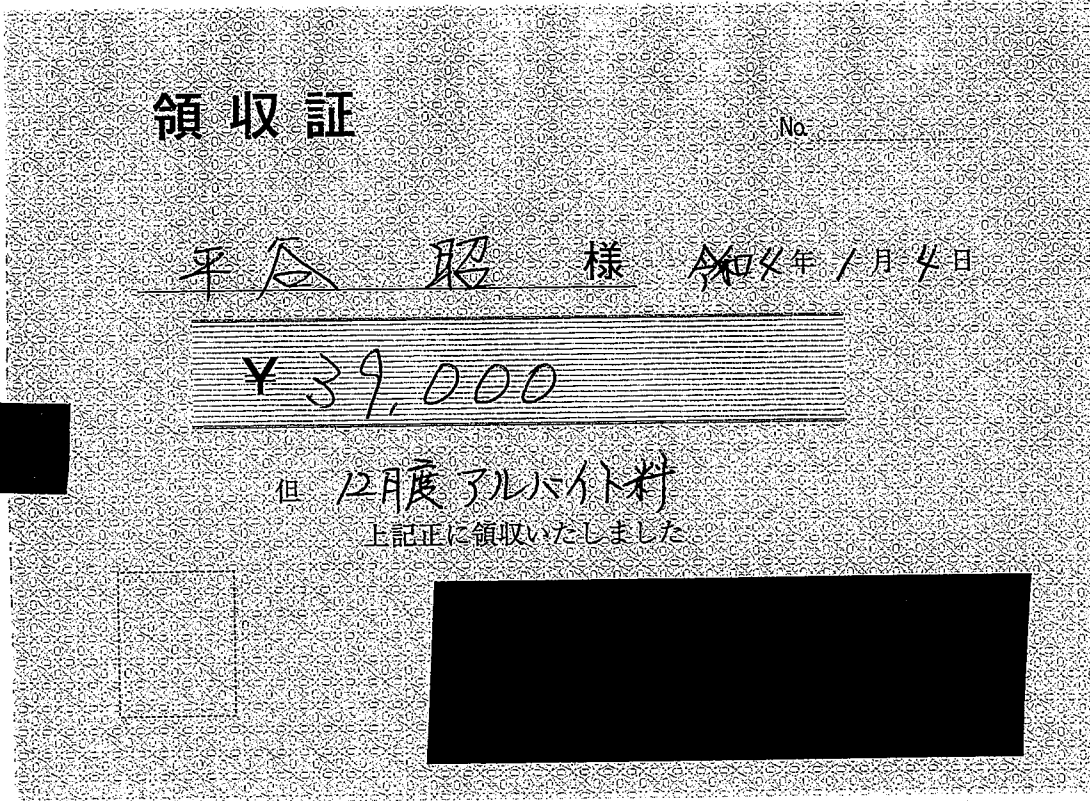 領収証
No.
平谷 昭 様 令和4年1月4日
¥39,000
但 12月度アルバイト料
上記正に領収いたしました